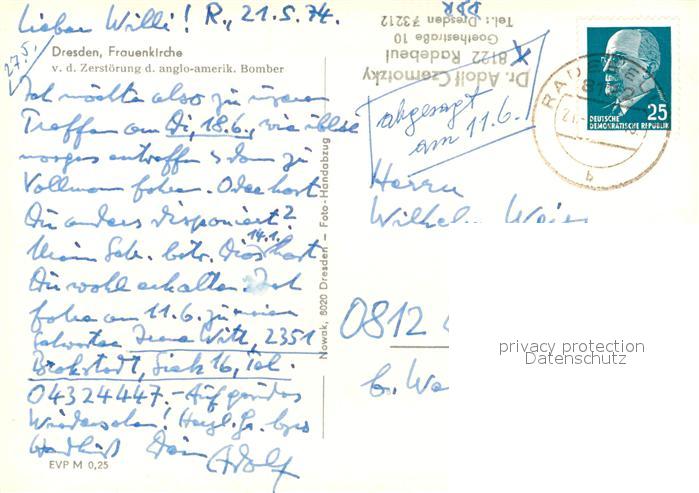 Lieber Willi! R., 21.5.74.
27.5.
Dresden, Frauenkirche
v. d. Zerstörung d. anglo-amerik. Bomber
Ich möchte also zu unserem
Treffen am Di, 18.6., wie üblich
morgens eintreffen & dann zu
Vollmann fahren. Oder hast
Du anders disponiert?
Mein Sch. betr. Dias 14.1. hast
Du wohl erhalten. Ich
fahre am 11.6. zu meiner
Irene Witt, 2351
Brokstedt, Siek 16, Tel.
04324447.- Auf gesundes
Wiedersehen! Herzl. Gr.
Handkuß Dein Adolf
EVP M 0,25
Nowak, 8020 Dresden – Foto-Handabzug
Dr. Adolf Czernotzky
X 8122 Radebeul
Goethestraße 10
Tel.: Dresden 73212
DDR
abgesagt
am 11.6.
RADEBEUL
8122
b
25
DEUTSCHE
DEMOKRATISCHE REPUBLIK
Herrn
Wilhelm
0812
privacy protection
Datenschutz